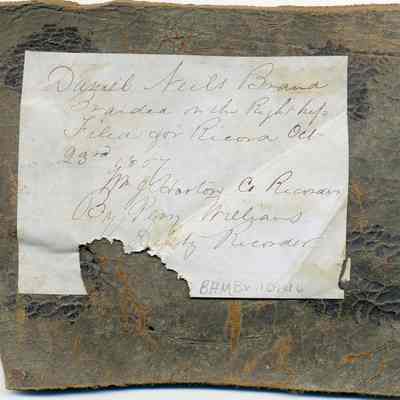 Daniel Neils Brand
Branded on the Right hip
Filed for Record Oct
23rd 1867
Wm J Horton Co Recorder
By Perry Williams
Deputy Recorder
BHMB